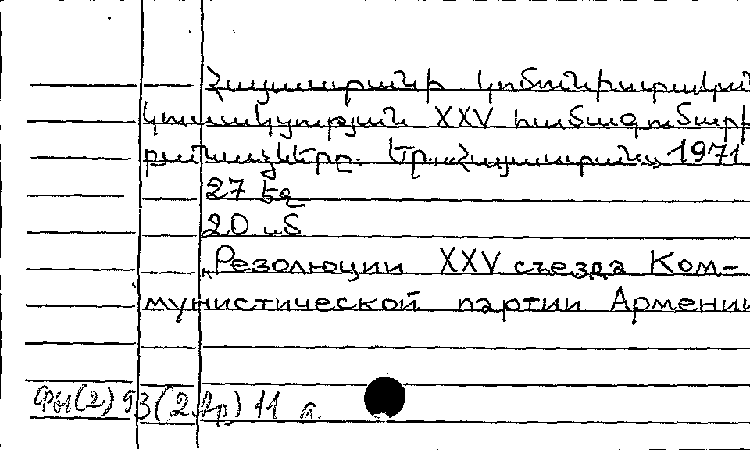 Հայաստանի կոմունիստական
կուսակցության XXV համագումարի
բանաձևերը. Եր. «Հայաստան», 1971
27 էջ
20 սմ
„Резолюции XXV съезда Ком-
мунистической партии Армении
93(2Ар) 11 а.